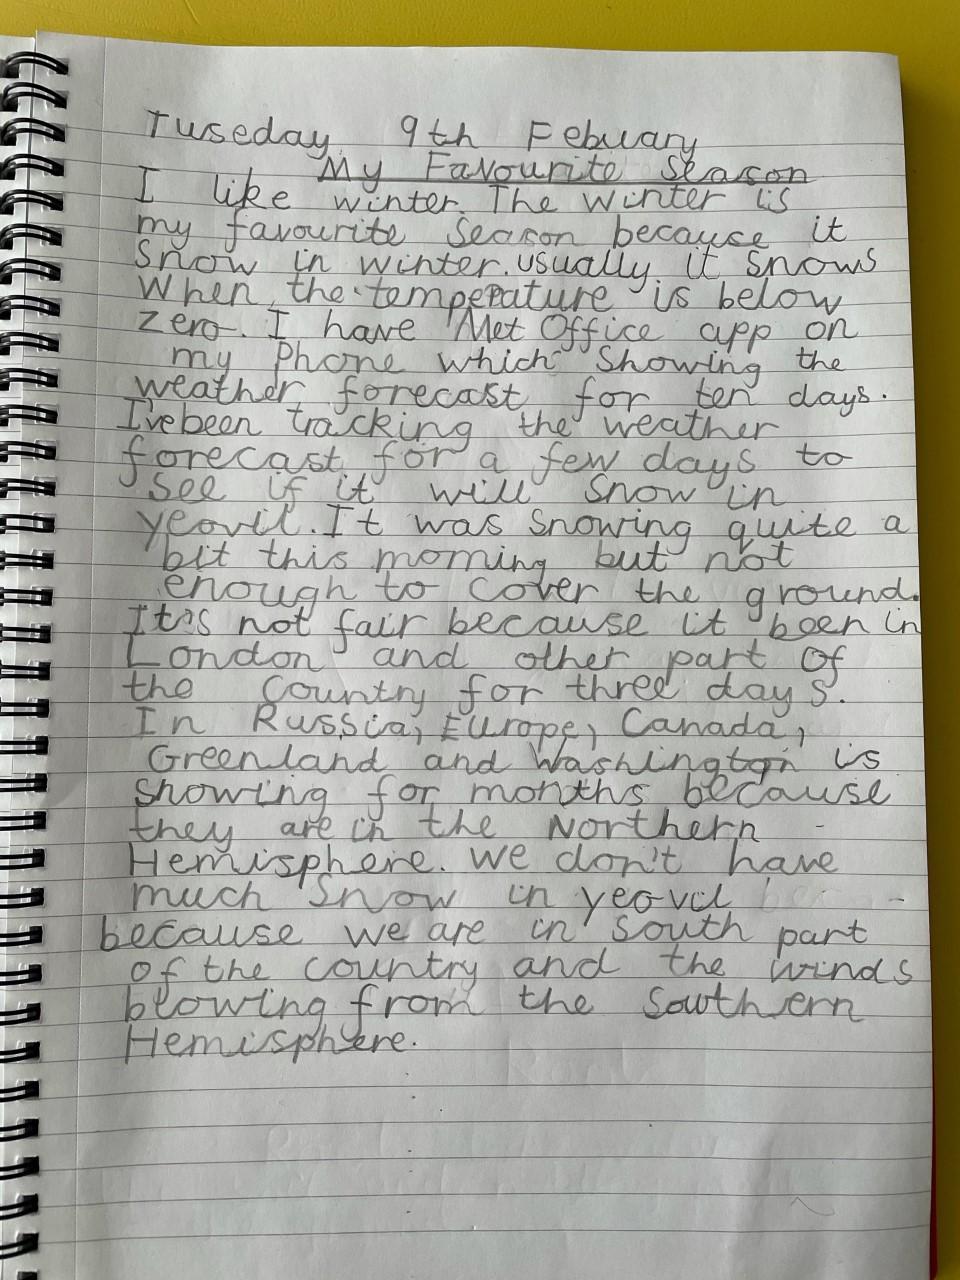 Tuseday 9th Febuary
My Favourite Season
I like winter. The winter is
my favourite season because it
snow in winter. usually it snows
when the temperature is below
zero. I have Met Office app on
my phone which showing the
weather forecast for ten days.
I've been tracking the weather
forecast for a few days to
see if it will snow in
yeovil. It was snowing quite a
bit this morning but not
enough to cover the ground.
It's not fair because it been in
London and other part of
the country for three days.
In Russia, Europe, Canada,
Greenland and Washington is
snowing for months because
they are in the Northern
Hemisphere. we don't have
much snow in yeovil
because we are in south part
of the country and the winds
blowing from the southern
Hemisphere.